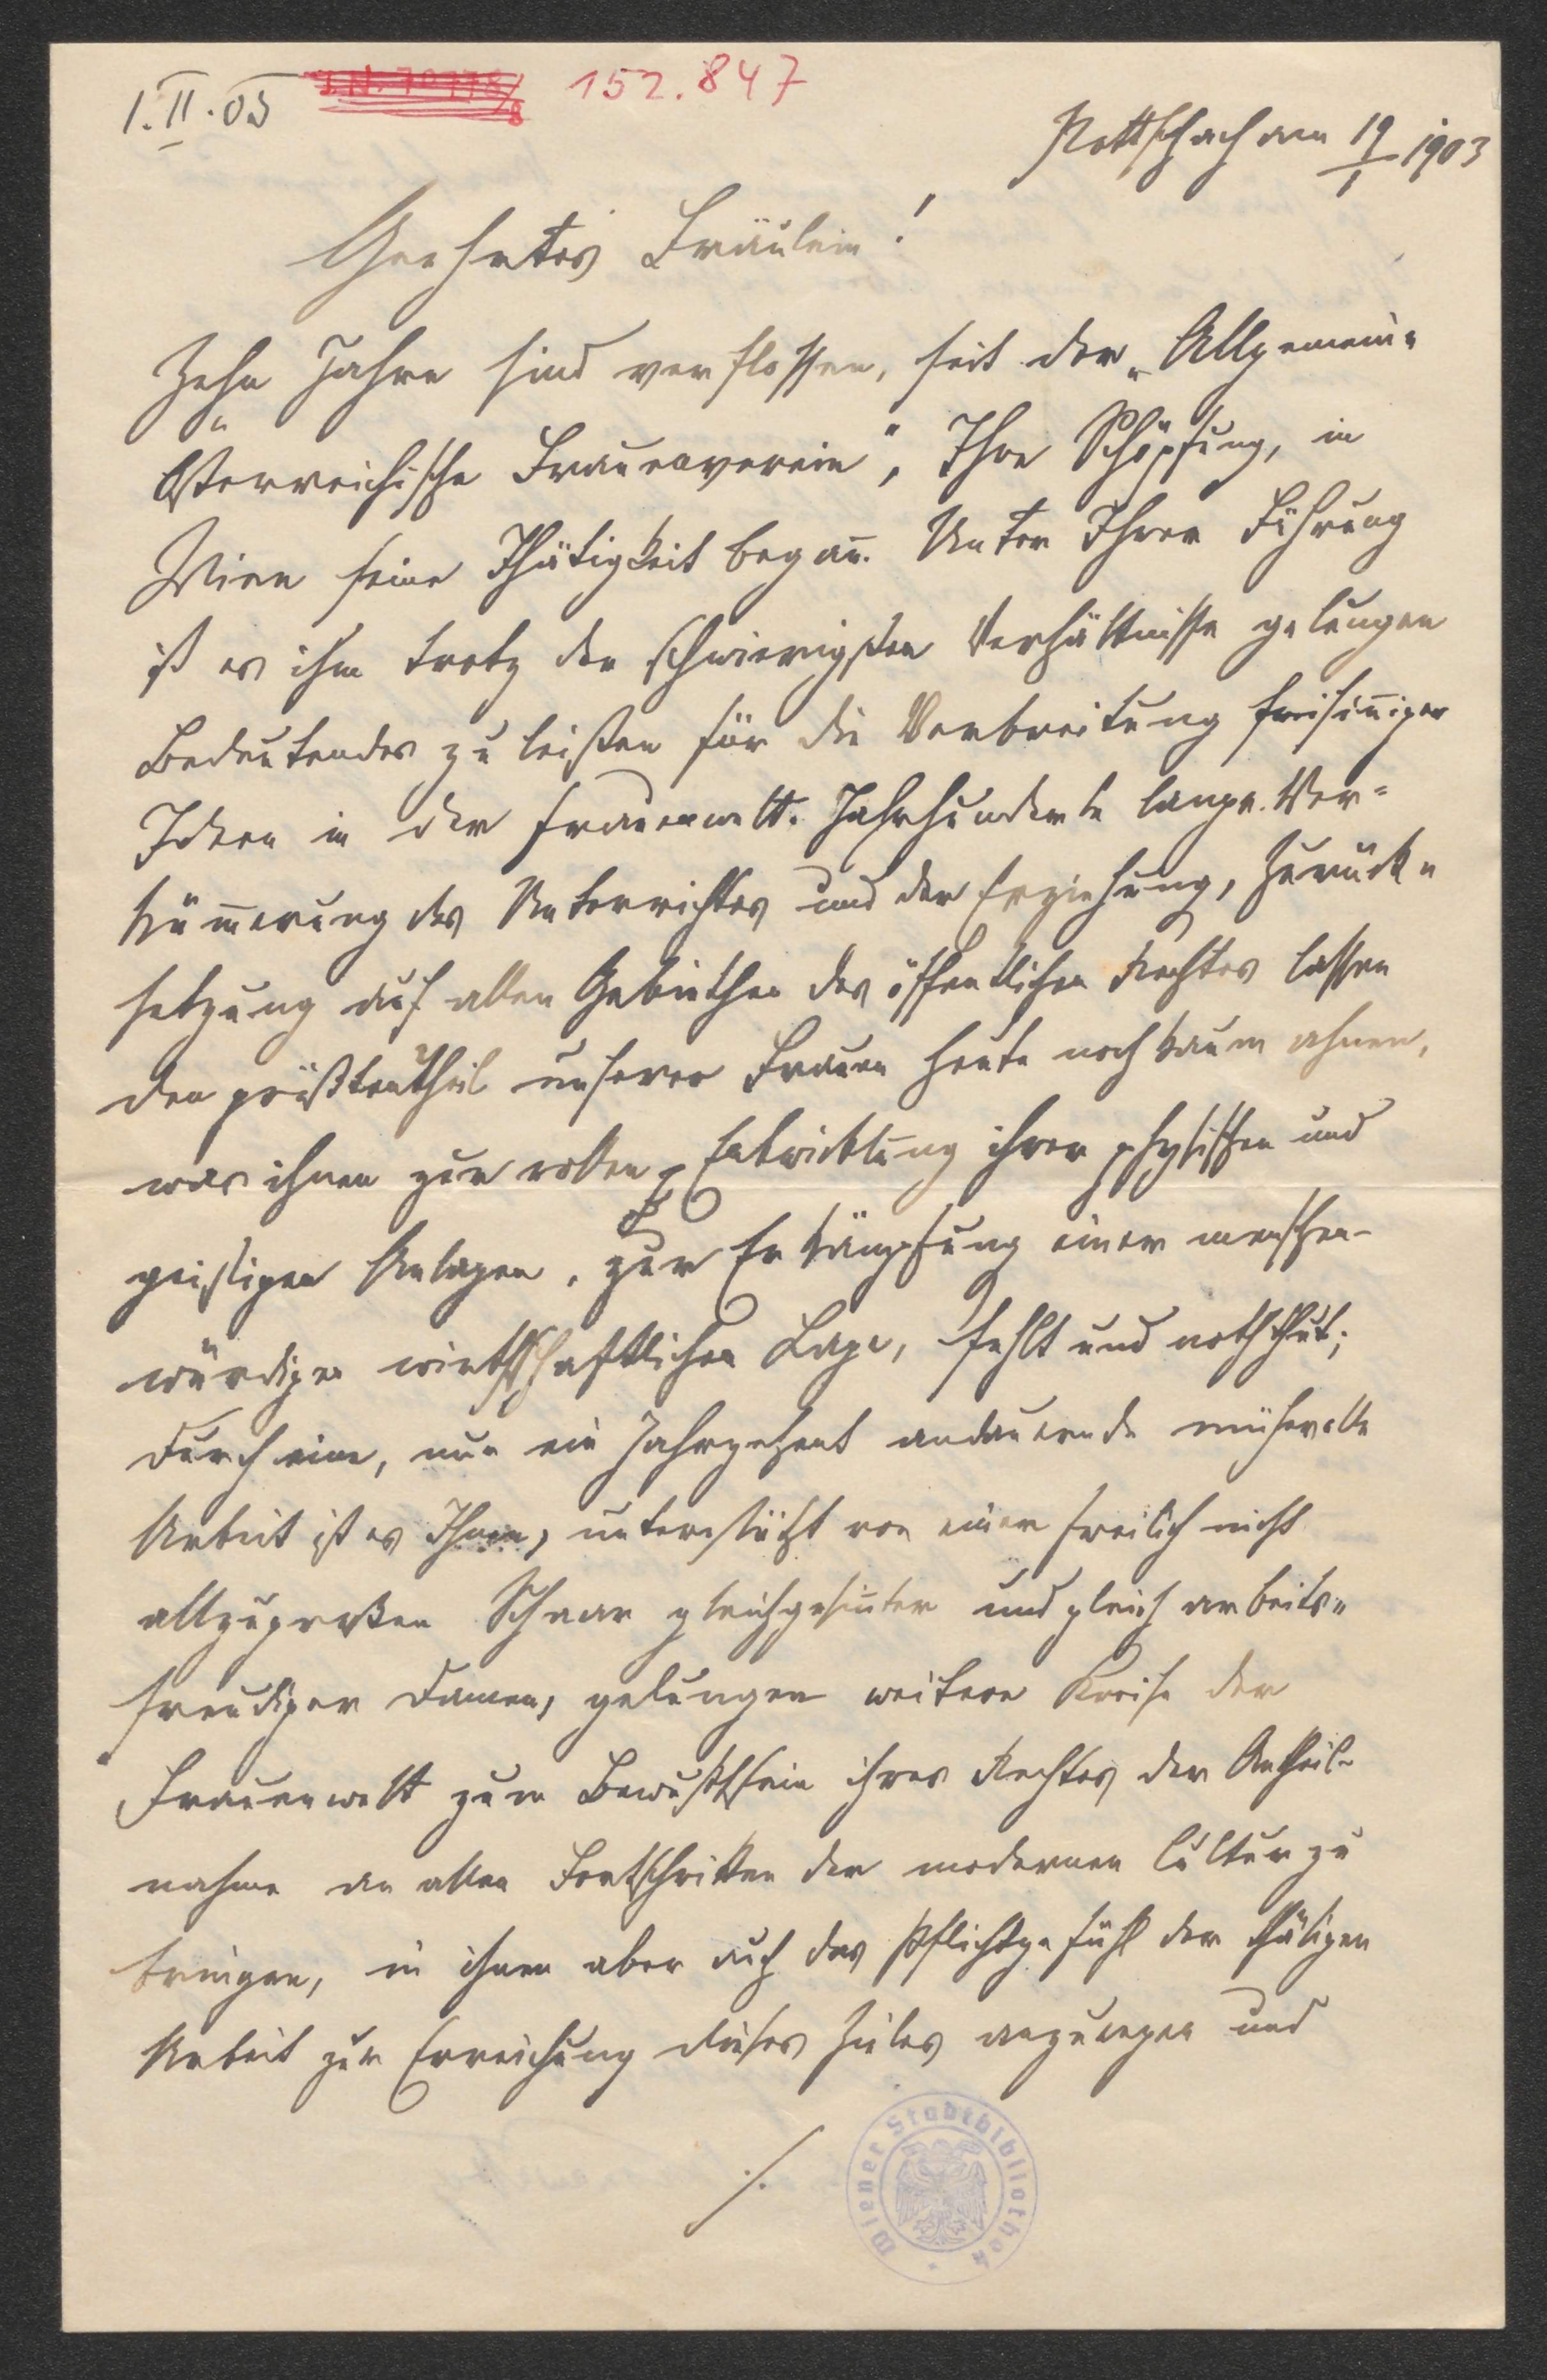 1.II.03 I.N. 70778/8 152.847
Pottschach am 19/1 1903
Geehrtes Fräulein!
Zehn Jahre sind verflossen, seit der „Allgemein-
Österreichische Frauenverein", Ihre Schöpfung, in
Wien seine Thätigkeit begañ. Unter Ihrer Führung
ist es ihm trotz der schwierigsten Verhältnisse gelungen
Bedeutendes zu leisten für die Verbreitung freisiñiger
Ideen in der Frauenwelt. Jahrhunderte lange Ver-
küm̄erung des Unterrichtes und der Erziehung, Zurück-
setzung auf allen Gebiethen des öffentlichen Rechtes lassen
den größtentheil unserer Frauen heute noch kaum ahnen,
was ihnen zur vollen Entwicklung ihrer physischen und
geistigen Anlagen, zur Erkämpfung einer menschen-
würdigen wirthschaftlichen Lage, fehlt und noththut;
Durch eine, nun ein Jahrzehent andauernde mühevolle
Arbeit ist es Ihnen, unterstützt von einer freilich nicht
allzugroßen Schaar gleichgesiñter und gleich arbeits-
freudiger Damen, gelungen weitere Kreise der
Frauenwelt zum Bewußtsein ihres Rechtes der Antheil-
nahme an allen Fortschritten der modernen Cultur zu
bringen, in ihnen aber auch das Pflichtgefühl der thätigen
Arbeit zur Erreichung dieses Zieles anzuregen und
./.
Wiener Stadtbibliothek